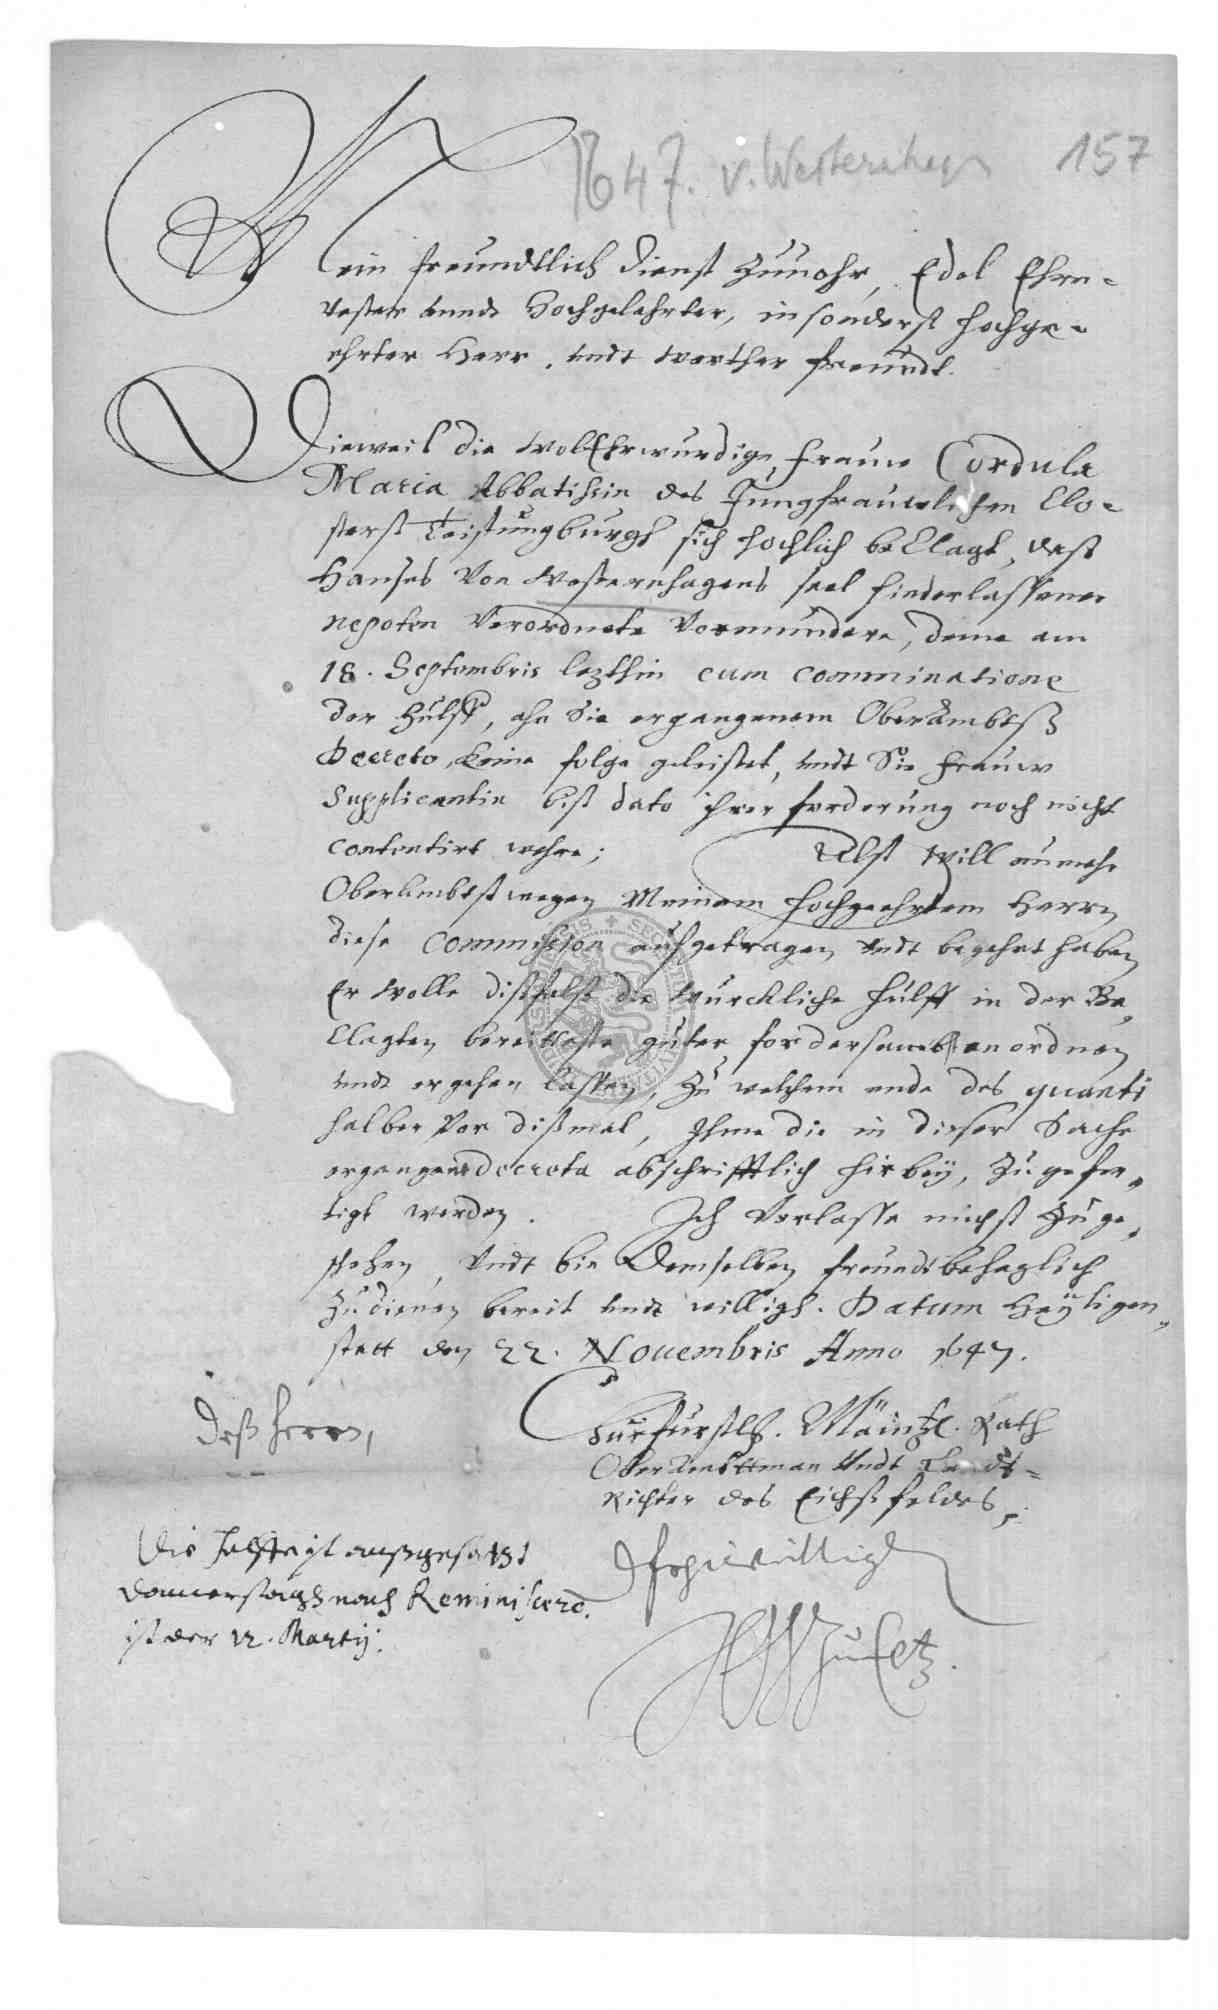 1647. v. Westernhagen 157
Mein freundtlich dienst zuuohr, Edel Ehrn-
vester unndt Hochgelehrter, insonderst hochge-
ehrter Herr, undt werther freundt.
Dieweil die WolEhrwürdige, frauw Cordula
Maria Abbatissin des Jungfrauwlichen Clo-
sterß Teistungburgk sich hochlich beClagt, deß
Hanses Von Westernhagens seel hinderlassener
nepoten Verordnete Vormundere, deme am
18. Septembris lezthin cum comminatione
der hülff, ahn Sie ergangenem Oberambtß
Decreto, keine folge geleistet, undt Sie frauw
Supplicantin biß dato ihrer forderung noch nicht
contentirt wehre; Alß will nunmehr
Oberambtß wegen Meinem hochgeehrtem Herrn
diese Commission aufgetragen undt begehrt haben
Er wolle dißfalß die würckliche hülff in der Be,,
Clagten bereiteste güter, fordersambst anordnen
undt ergehen lassen, Zu welchem ende des quanti
halber Vor dißmal, Ihme die in dieser Sache
ergangene decreta abschrifftlich hirbey, Zugefer,,
tigt werden. Ich Verlasse michß Zuge,,
schehen, Undt bin Demselben freundtbehaglich
Zudienen bereit undt willigh. Datum Heyligen,,
statt den 22. Nouembris Anno 1647.
Deß Herrn,
Churfürstlh. Mäintzl. Rath
OberAmbttman Undt Landt-
Richter des Eichßfeldes,
Die Hülff ist außgesetzt
Donnerstagh nach Reminiscere.
ist der 12. Martij.